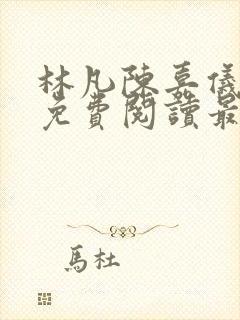 林凡陳嘉儀
免費閱讀最
馬杜